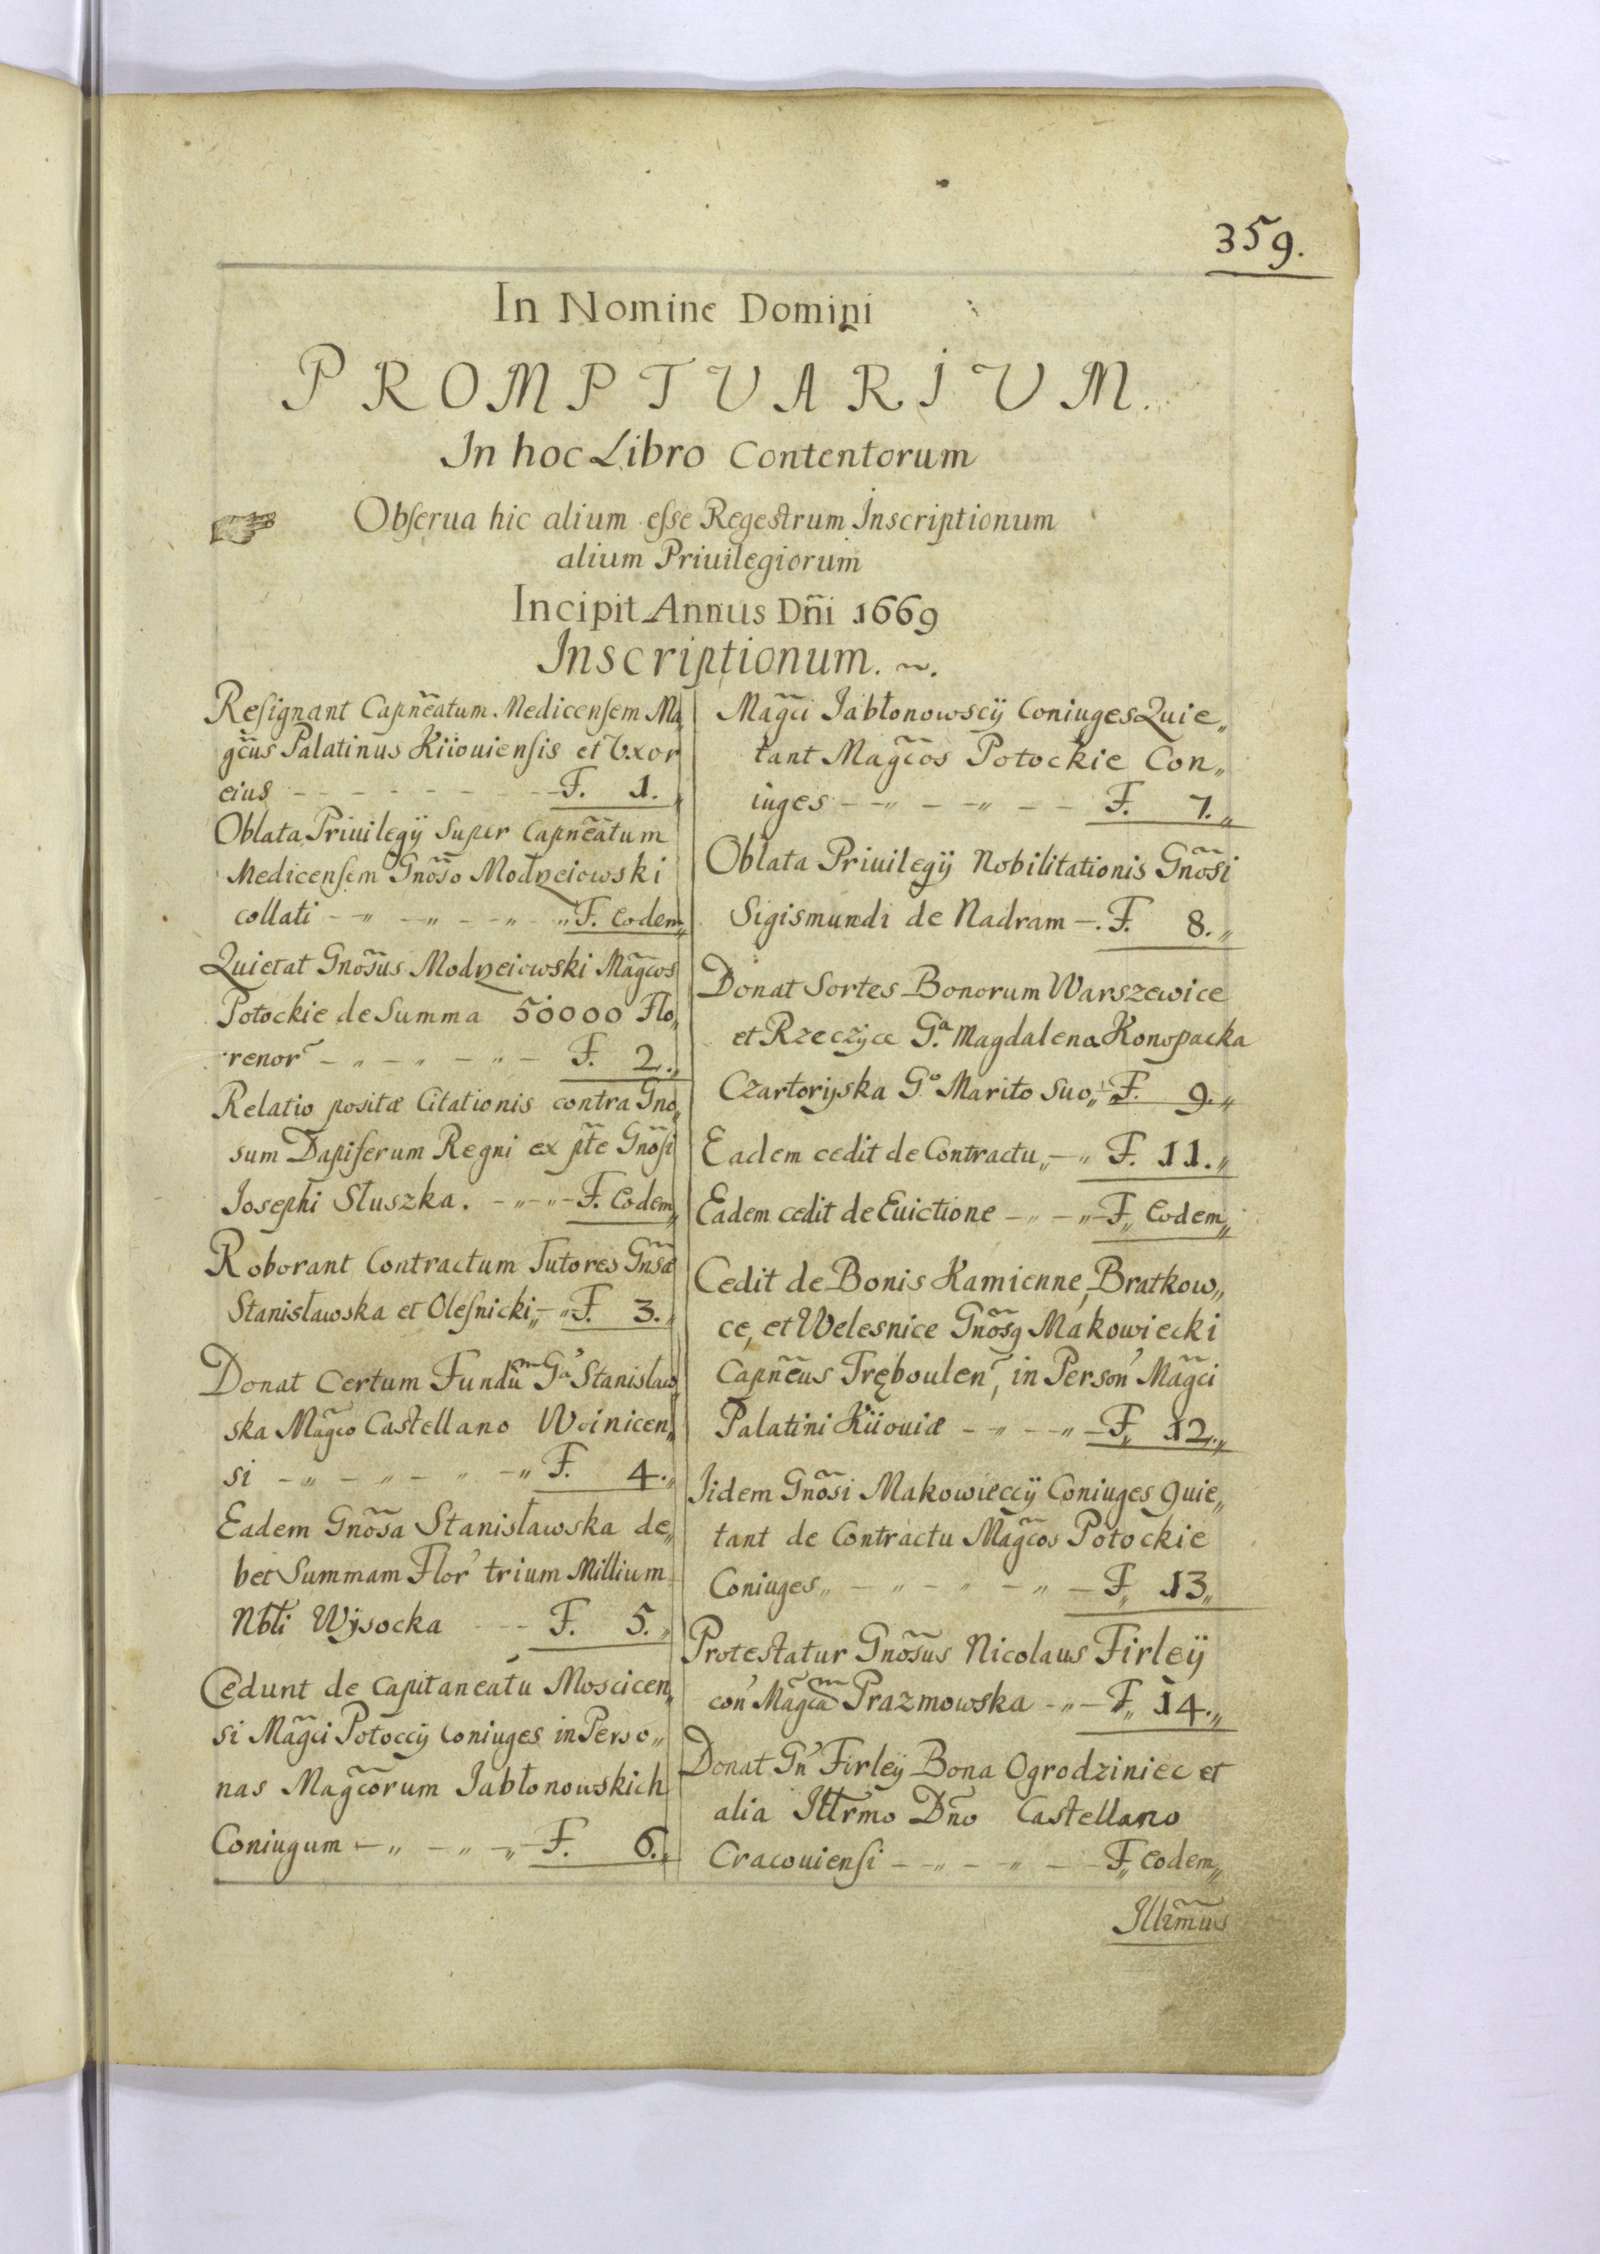 359.
In Nomine Domini
PROMPTUARIUM.
In hoc Libro Contentorum
Obserua hic alium esse Regestrum Inscriptionum
alium Priuilegiorum
Incipit Annus Dñi 1669
Inscriptionum. ~.
Resignant Capñeatum Medicensem Ma„
gc̃us Palatinus Kiiouiensis et Vxor
eius - - - - - - - F. 1.„
Oblata Priuilegÿ Super Capñeatum
Medicensem Gnõso Modrzeiowski
collati - „ - „ - „ - „ F. Eodem„
Quietat Gnõsus Modrzeiowski Mag̃cos
Potockie de Summa 50000 Flo„
renor~ - „ - „ - „ - F. 2.„
Relatio positæ Citationis contra Gno„
sum Dapiferum Regni ex pt̃e Gnõsi
Josephi Słuszka. - „ - „ - F. Eodem„
Roborant Contractum Tutores Gnõsæ
Stanisławska et Olesnicki„ - „ F. 3.„
Donat Certum Fundũm Ga' Stanisław„
ska Mag̃co Castellano Woinicen„
si - „ - „ - „ - „ F. 4.„
Eadem Gnõsa Stanisławska de„
bet Summam Flor' trium Millium
Nbłi Wÿsocka - - - F. 5.„
Cedunt de Capitaneatu Moscicen„
si Mag̃ci Potoccÿ Coniuges in Perso„
nas Mag̃corum Jabłonowskich
Coniugum - „ - „ - „ - F. 6.„
Mag̃ci Jabłonowscÿ Coniuges Quie„
tant Mag̃cos Potockie Con„
iuges - - „ - - „ - - F. 7.„
Oblata Priuilegÿ Nobilitationis Gnõsi
Sigismundi de Nadram -. F. 8.„
Donat Sortes Bonorum Warszewice
et Rzeczÿce Ga. Magdalena Konopacka
Czartorÿska Go Marito suo„ - F. 9.„
Eadem cedit de Contractu„ - „ F. 11.„
Eadem cedit de Euictione - „ - „ - F„ Eodem„
Cedit de Bonis Kamienne, Bratkow„
ce, et Welesnice Gnõsq Makowiecki
Capñeus Tręboulen~, in Person' Mag̃ci
Palatini Kiiouiæ - „ - - „ - F„ 12.„
Jidem Gnõsi Makowieccÿ Coniuges quie„
tant de Contractu Mag̃cos Potockie
Coniuges„ - „ - „ - „ - F„ 13„
Protestatur Gnõsus Nicolaus Firleÿ
con' Mag̃cam Prazmowska - „ - F„ 14.„
Donat Gn' Firleÿ Bona Ogrodziniec et
alia Illr̃mo Dño Castellano
Cracouiensi - „ - „ - F„ eodem„
Illr̃mus